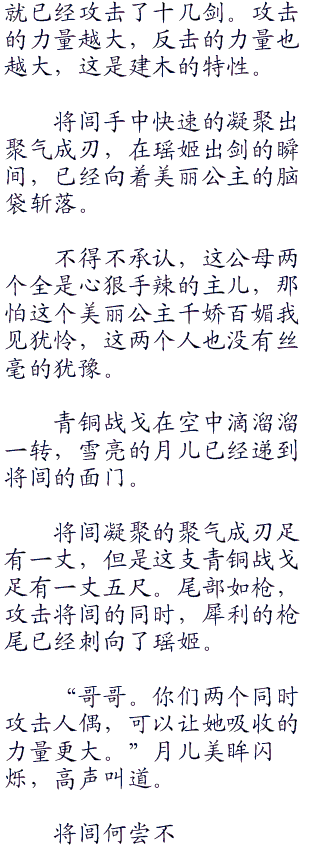 就已经攻击了十几剑。攻击
的力量越大，反击的力量也
越大，这是建木的特性。
将闾手中快速的凝聚出
聚气成刃，在瑶姬出剑的瞬
间，已经向着美丽公主的脑
袋斩落。
不得不承认，这公母两
个全是心狠手辣的主儿，那
怕这个美丽公主千娇百媚我
见犹怜，这两个人也没有丝
毫的犹豫。
青铜战戈在空中滴溜溜
一转，雪亮的月儿已经递到
将闾的面门。
将闾凝聚的聚气成刃足
有一丈，但是这支青铜战戈
足有一丈五尺。尾部如枪，
攻击将闾的同时，犀利的枪
尾已经刺向了瑶姬。
“哥哥。你们两个同时
攻击人偶，可以让她吸收的
力量更大。”月儿美眸闪
烁，高声叫道。
将闾何尝不